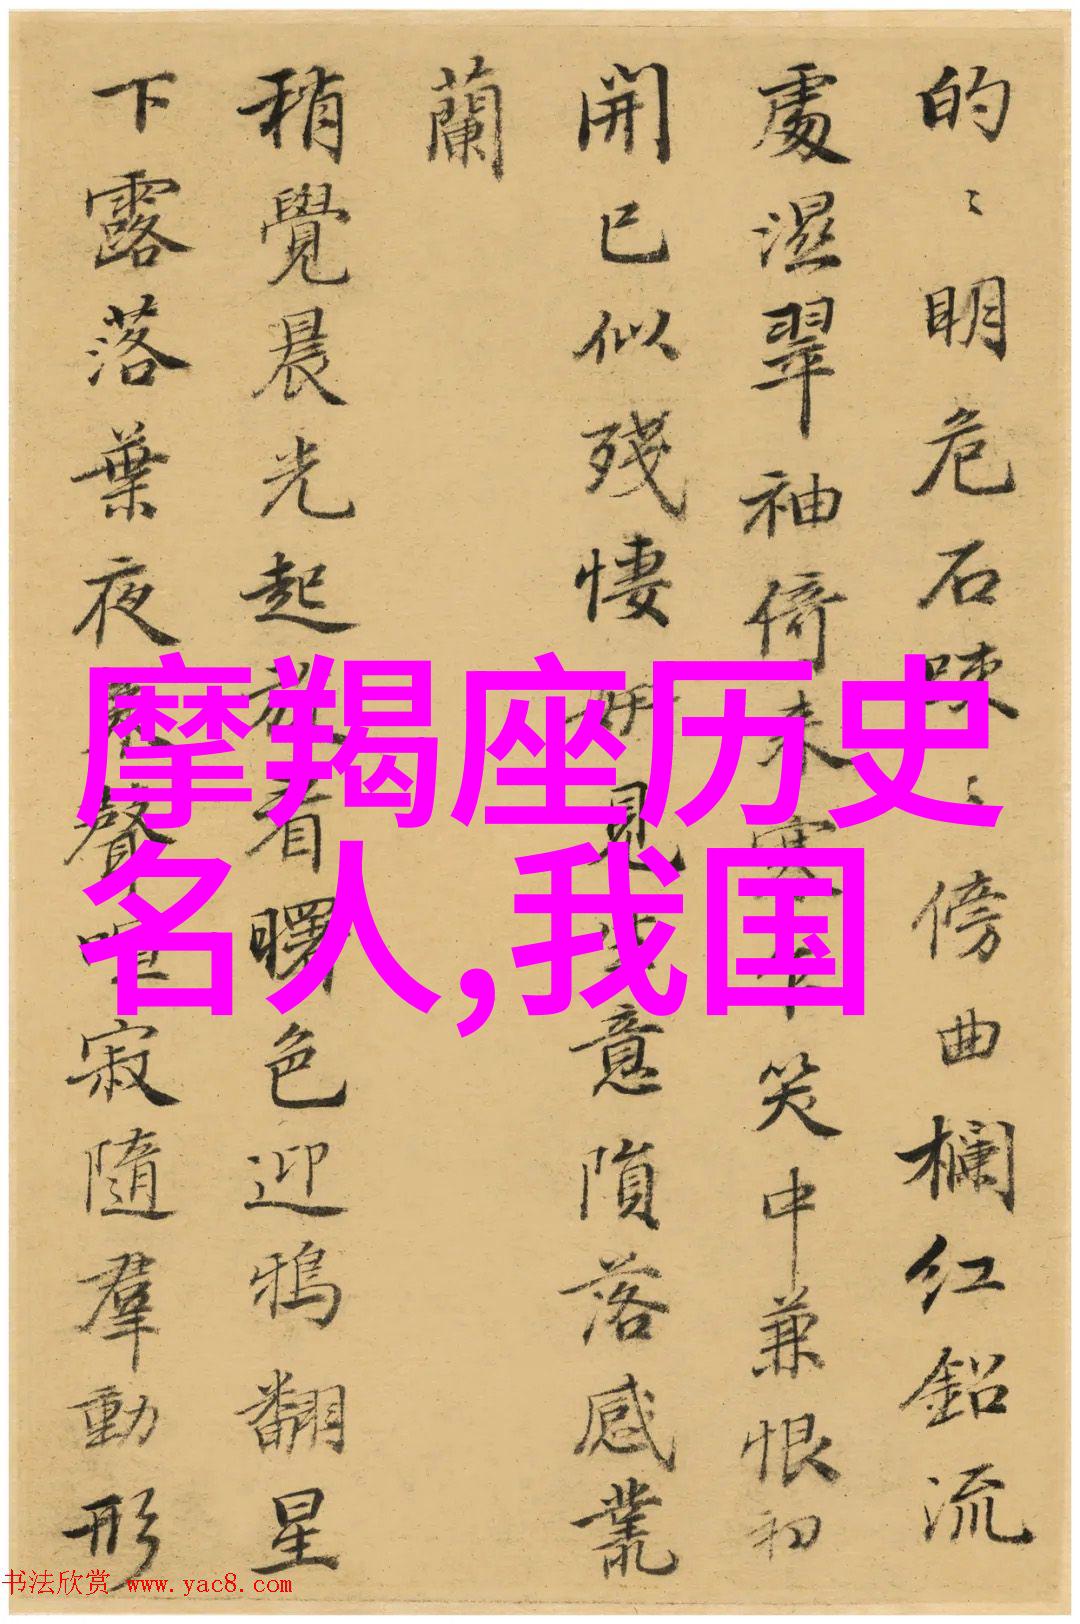 的〻明危石踈〻傍曲欄红鉛流
處濕翠袖倚来寒笑中兼恨初
開已似殘悽妍見生意隕落感叢
蘭
稍覺晨光起看曙色迎鴉翻星
下露落葉夜聲喧寂隨羣動形
摩羯座历史
名人,我国
书法欣赏 www.yac8.com